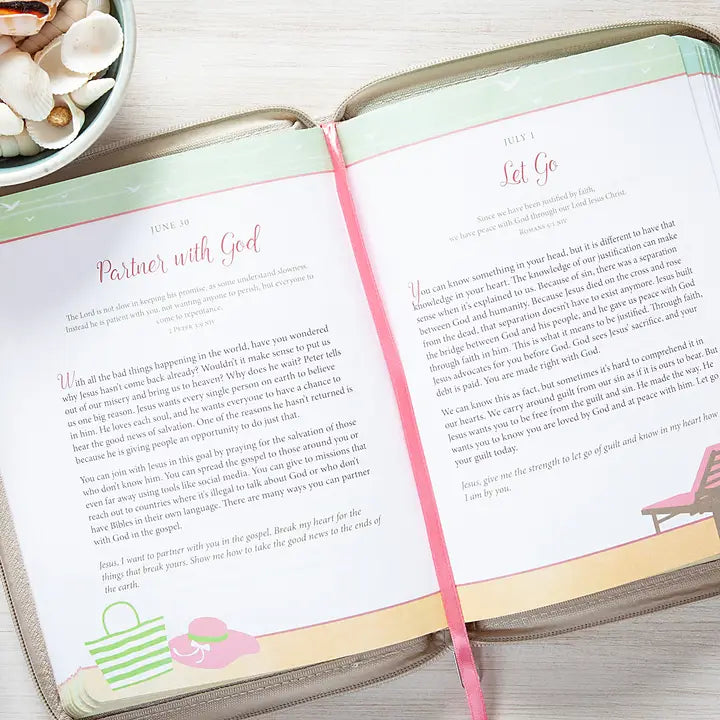 JUNE 30
Partner with God
The Lord is not slow in keeping his promise, as some understand slowness.
Instead he is patient with you, not wanting anyone to perish, but everyone to
come to repentance.
2 PETER 3:9 NIV
With all the bad things happening in the world, have you wondered
why Jesus hasn't come back already? Wouldn't it make sense to put us
out of our misery and bring us to heaven? Why does he wait? Peter tells
us one big reason. Jesus wants every single person on earth to believe
in him. He loves each soul, and he wants everyone to have a chance to
hear the good news of salvation. One of the reasons he hasn't returned is
because he is giving people an opportunity to do just that.
You can join with Jesus in this goal by praying for the salvation of those
who don't know him. You can spread the gospel to those around you or
even far away using tools like social media. You can give to missions that
reach out to countries where it's illegal to talk about God or who don't
have Bibles in their own language. There are many ways you can partner
with God in the gospel.
Jesus, I want to partner with you in the gospel. Break my heart for the
things that break yours. Show me how to take the good news to the ends of
the earth.
JULY 1
Let Go
Since we have been justified by faith,
we have peace with God through our Lord Jesus Christ.
ROMANS 5:1 NIV
You can know something in your head, but it is different to have that
knowledge in your heart. The knowledge of our justification can make
sense when it's explained to us. Because of sin, there was a separation
between God and humanity. Because Jesus died on the cross and rose
from the dead, that separation doesn't have to exist anymore. Jesus built
the bridge between God and his people, and he gave us peace with God
through faith in him. This is what it means to be justified. Through faith,
Jesus advocates for you before God. God sees Jesus' sacrifice, and your
debt is paid. You are made right with God.
We can know this as fact, but sometimes it's hard to comprehend it in
our hearts. We carry around guilt from our sin as if it is ours to bear. But
Jesus wants you to be free from the guilt and sin. He made the way. He
wants you to know you are loved by God and at peace with him. Let go
your guilt today.
Jesus, give me the strength to let go of guilt and know in my heart how
I am by you.